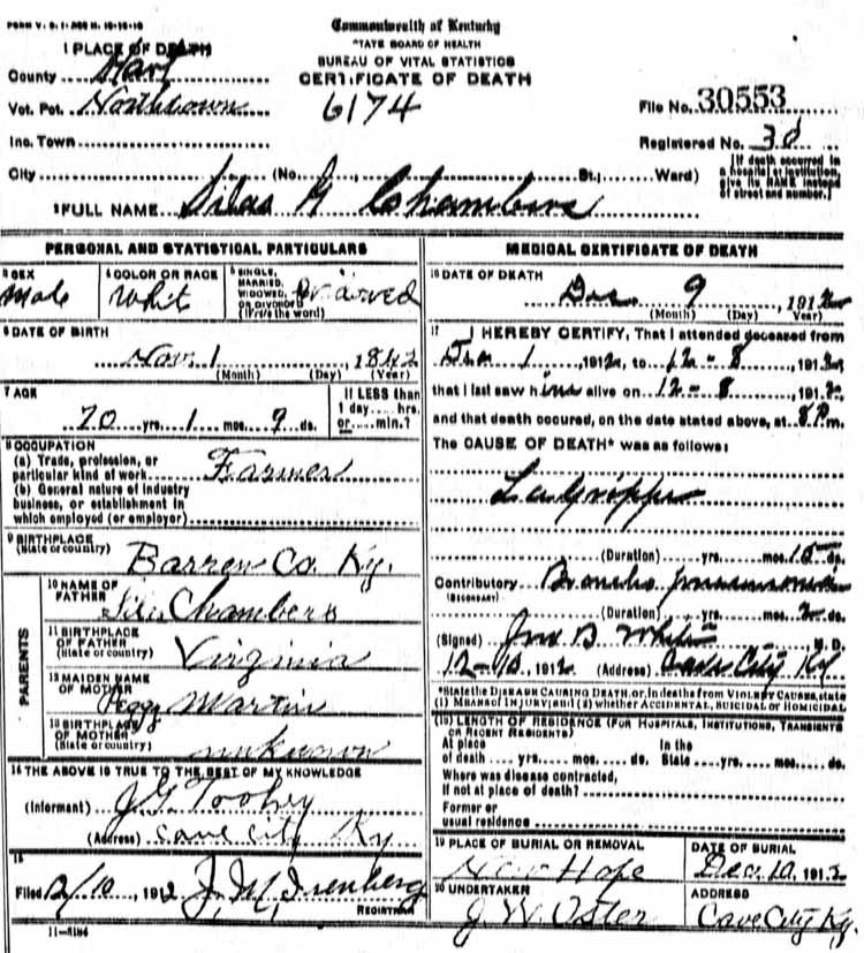 FORM V. S. 1-
Commonwealth of Kentucky
STATE BOARD OF HEALTH
BUREAU OF VITAL STATISTICS
CERTIFICATE OF DEATH
1 PLACE OF DEATH
County Hart
Vot. Pct. Northtown
6174
File No. 30553
Inc. Town
Registered No.
City (No. St.; Ward)
[If death occurred in a hospital or institution, give its NAME instead of street and number.]
2 FULL NAME Silas G Chambers
PERSONAL AND STATISTICAL PARTICULARS
3 SEX
Male
4 COLOR OR RACE
Whit
5 SINGLE, MARRIED, WIDOWED, OR DIVORCED
(Write the word)
6 DATE OF BIRTH
Nov. 1, 1842
(Month) (Day) (Year)
7 AGE
70 yrs. 1 mos. 9 ds.
If LESS than 1 day.... hrs. or.... min.?
8 OCCUPATION
(a) Trade, profession, or
particular kind of work Farmer
(b) General nature of industry
business, or establishment in
which employed (or employer)
9 BIRTHPLACE
(State or country) Barren Co. Ky.
PARENTS
10 NAME OF
FATHER Chambers
11 BIRTHPLACE
OF FATHER
(State or country) Virginia
12 MAIDEN NAME
OF MOTHER Peggy Martin
13 BIRTHPLACE
OF MOTHER
(State or country) unknown
14 THE ABOVE IS TRUE TO THE BEST OF MY KNOWLEDGE
(Informant) J.G. Toohey
(Address) Cave City Ky
15
Filed 12/10, 1912 J. M. Isenberg
REGISTRAR
11-6184
MEDICAL CERTIFICATE OF DEATH
16 DATE OF DEATH
Dec. 9, 1912
(Month) (Day) Year)
17 I HEREBY CERTIFY, That I attended deceased from
Dec 1, 1912, to 12-8, 1912,
that I last saw him alive on 12-8, 1912,
and that death occured, on the date stated above, at 8 P.m.
The CAUSE OF DEATH* was as follows:
LaGrippe
(Duration) yrs. mos. 10 ds.
Contributory Broncho pneumonia
(SECONDARY)
(Duration) yrs. mos. 2 ds.
(Signed) Jno B White M. D.
12-10, 1912 (Address) Cave City Ky
*State the DISEASE CAUSING DEATH, or, in deaths from VIOLENT CAUSES, state
(1) MEANS of INJURY; and (2) whether ACCIDENTAL, SUICIDAL or HOMICIDAL
(18) LENGTH OF RESIDENCE (FOR HOSPITALS, INSTITUTIONS, TRANSIENTS
OR RECENT RESIDENTS)
At place In the
of death .... yrs. .... mos. .... ds. State .... yrs. .... mos. .... ds.
Where was disease contracted,
If not at place of death?
Former or
usual residence
19 PLACE OF BURIAL OR REMOVAL
New Hope
DATE OF BURIAL
Dec. 10, 1912
20 UNDERTAKER
J. W. Oster
ADDRESS
Cave City Ky.